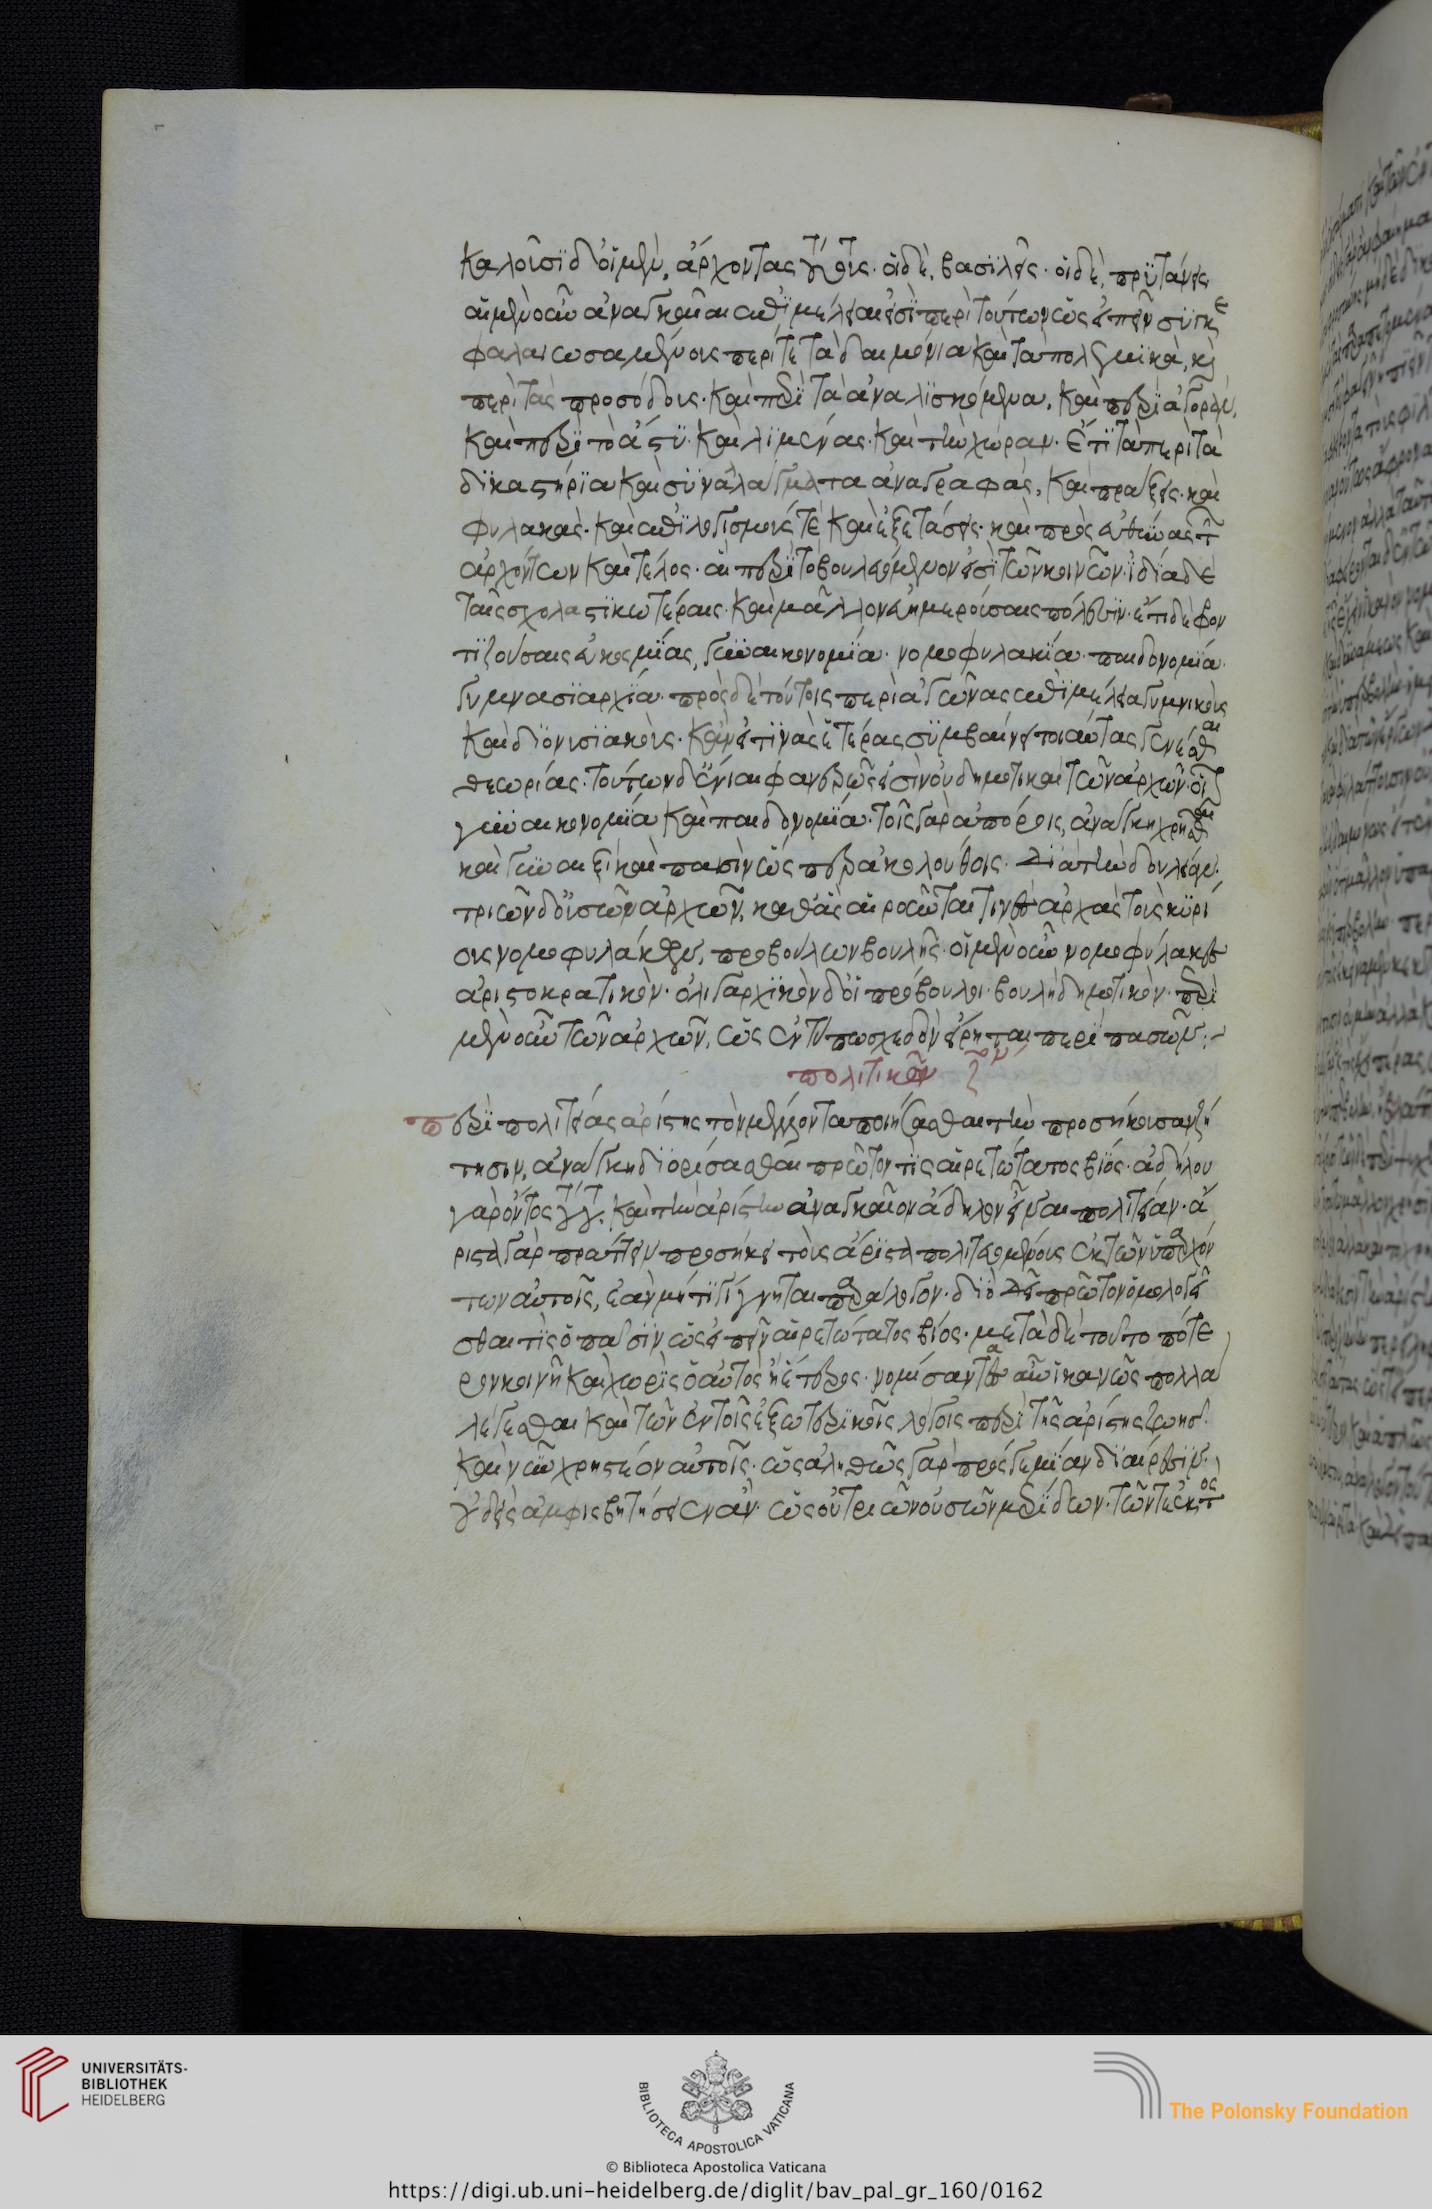 καλοῦσι δ' οἱ μὲν, ἄρχοντας τούτους· οἱ δὲ, βασιλεῖς· οἱ δὲ, πρυτάνεις
αἱ μὲν οὖν ἀναγκαῖαι ἐπιμέλειαι εἰσὶ περὶ τούτων ὡς εἰπεῖν συγκε
φαλαιωσαμένους περί τε τὰ δαιμόνια καὶ τὰ πολεμικὰ, καὶ
περὶ τὰς προσόδους· καὶ περὶ τὰ ἀναλισκόμενα, καὶ περὶ ἀγορὰν,
καὶ περὶ τὸ ἄστυ· καὶ λιμένας· καὶ τὴν χώραν· ἔτι τὰ περὶ τὰ
δικαστήρια καὶ συναλλαγμάτα ἀναγραφὰς, καὶ πράξεις· καὶ
φυλακὰς· καὶ ἐπιλογισμούς τε καὶ ἐξετάσεις· καὶ πρὸς εὐθύνας τῶν
ἀρχόντων καὶ τέλος· αἱ περὶ τὸ βουλευόμενον εἰσὶ τῶν κοινῶν· ἰδία δὲ
ταῖς σχολαστικωτέραις· καὶ μᾶλλον εὐημερούσαις πόλεσιν· ἔτι δὲ φρον
τιζούσαις εὐκοσμίας, γυναικονομία· νομοφυλακία· παιδονομία·
γυμνασιαρχία· πρὸς δὲ τούτοις περὶ ἀγῶνας ἐπιμέλεια γυμνικοὺς
καὶ διονυσιακοὺς· κἂν εἴ τινας ἑτέρας συμβαίνει τοιαύτας γενέσθαι
θεωρίας· τούτων δ' ἔνιαι φανερῶς εἰσὶν οὐ δημοτικαὶ τῶν ἀρχῶν· οἷον
γυναικονομία καὶ παιδονομία· τοῖς γὰρ ἀπόροις, ἀνάγκη χρῆσθαι
καὶ γυναιξὶ καὶ παισὶν ὡς περ ἀκολούθοις· διὰ τὴν δουλείαν·
τριῶν δ' οὐσῶν ἀρχῶν, καθ' ἃς αἱροῦνταί τινες ἀρχὰς τοὺς κυρί
ους νομοφυλάκων, προβούλων βουλῆς· οἱ μὲν οὖν νομοφύλακες
ἀριστοκρατικὸν· ὀλιγαρχικὸν δ' οἱ πρόβουλοι· βουλὴ δημοτικὸν· περὶ
μὲν οὖν τῶν ἀρχῶν, ὡς ἐν τύπω σχεδὸν εἴρηται περὶ πασῶν:~
πολιτικῶν ζον
περὶ πολιτείας ἀρίστης τὸν μέλλοντα ποιήσασθαι τὴν προσήκουσαν ζή
τησιν, ἀνάγκη διορίσασθαι πρῶτον τίς αἱρετώτατος βίος· ἀδήλου
γὰρ ὄντος τούτου, καὶ τὴν ἀρίστην ἀναγκαῖον ἄδηλον εἶναι πολιτείαν· ἄ
ριστα γὰρ πράττειν προσήκει τοὺς ἄριστα πολιτευομένους ἐκ τῶν ὑπαρχόν
των αὐτοῖς, ἐὰν μή τι γίγνηται παράλογον· διὸ δεῖ πρῶτον ὁμολογεῖ
σθαι τίς ὁ πᾶσιν ὡς εἰπεῖν αἱρετώτατος βίος· μετὰ δὲ τοῦτο πότε
ρον κοινῆ καὶ χωρὶς ὁ αὐτὸς ἢ ἕτερος· νομίσαντας οὖν ἱκανῶς πολλὰ
λέγεσθαι καὶ τῶν ἐν τοῖς ἐξωτερικοῖς λόγοις περὶ τῆς ἀρίστης ζωῆς·
καὶ νῦν χρηστέον αὐτοῖς· ὡς ἀληθῶς γὰρ πρός γε μίαν διαίρεσιν·
οὐδεὶς ἀμφισβητήσειεν ἂν· ὡς οὐ τριῶν οὐσῶν μερίδων· τῶν τε ἐκτὸς
UNIVERSITÄTS-
BIBLIOTHEK
HEIDELBERG
BIBLIOTECA APOSTOLICA VATICANA
The Polonsky Foundation
© Biblioteca Apostolica Vaticana
https://digi.ub.uni-heidelberg.de/diglit/bav_pal_gr_160/0162